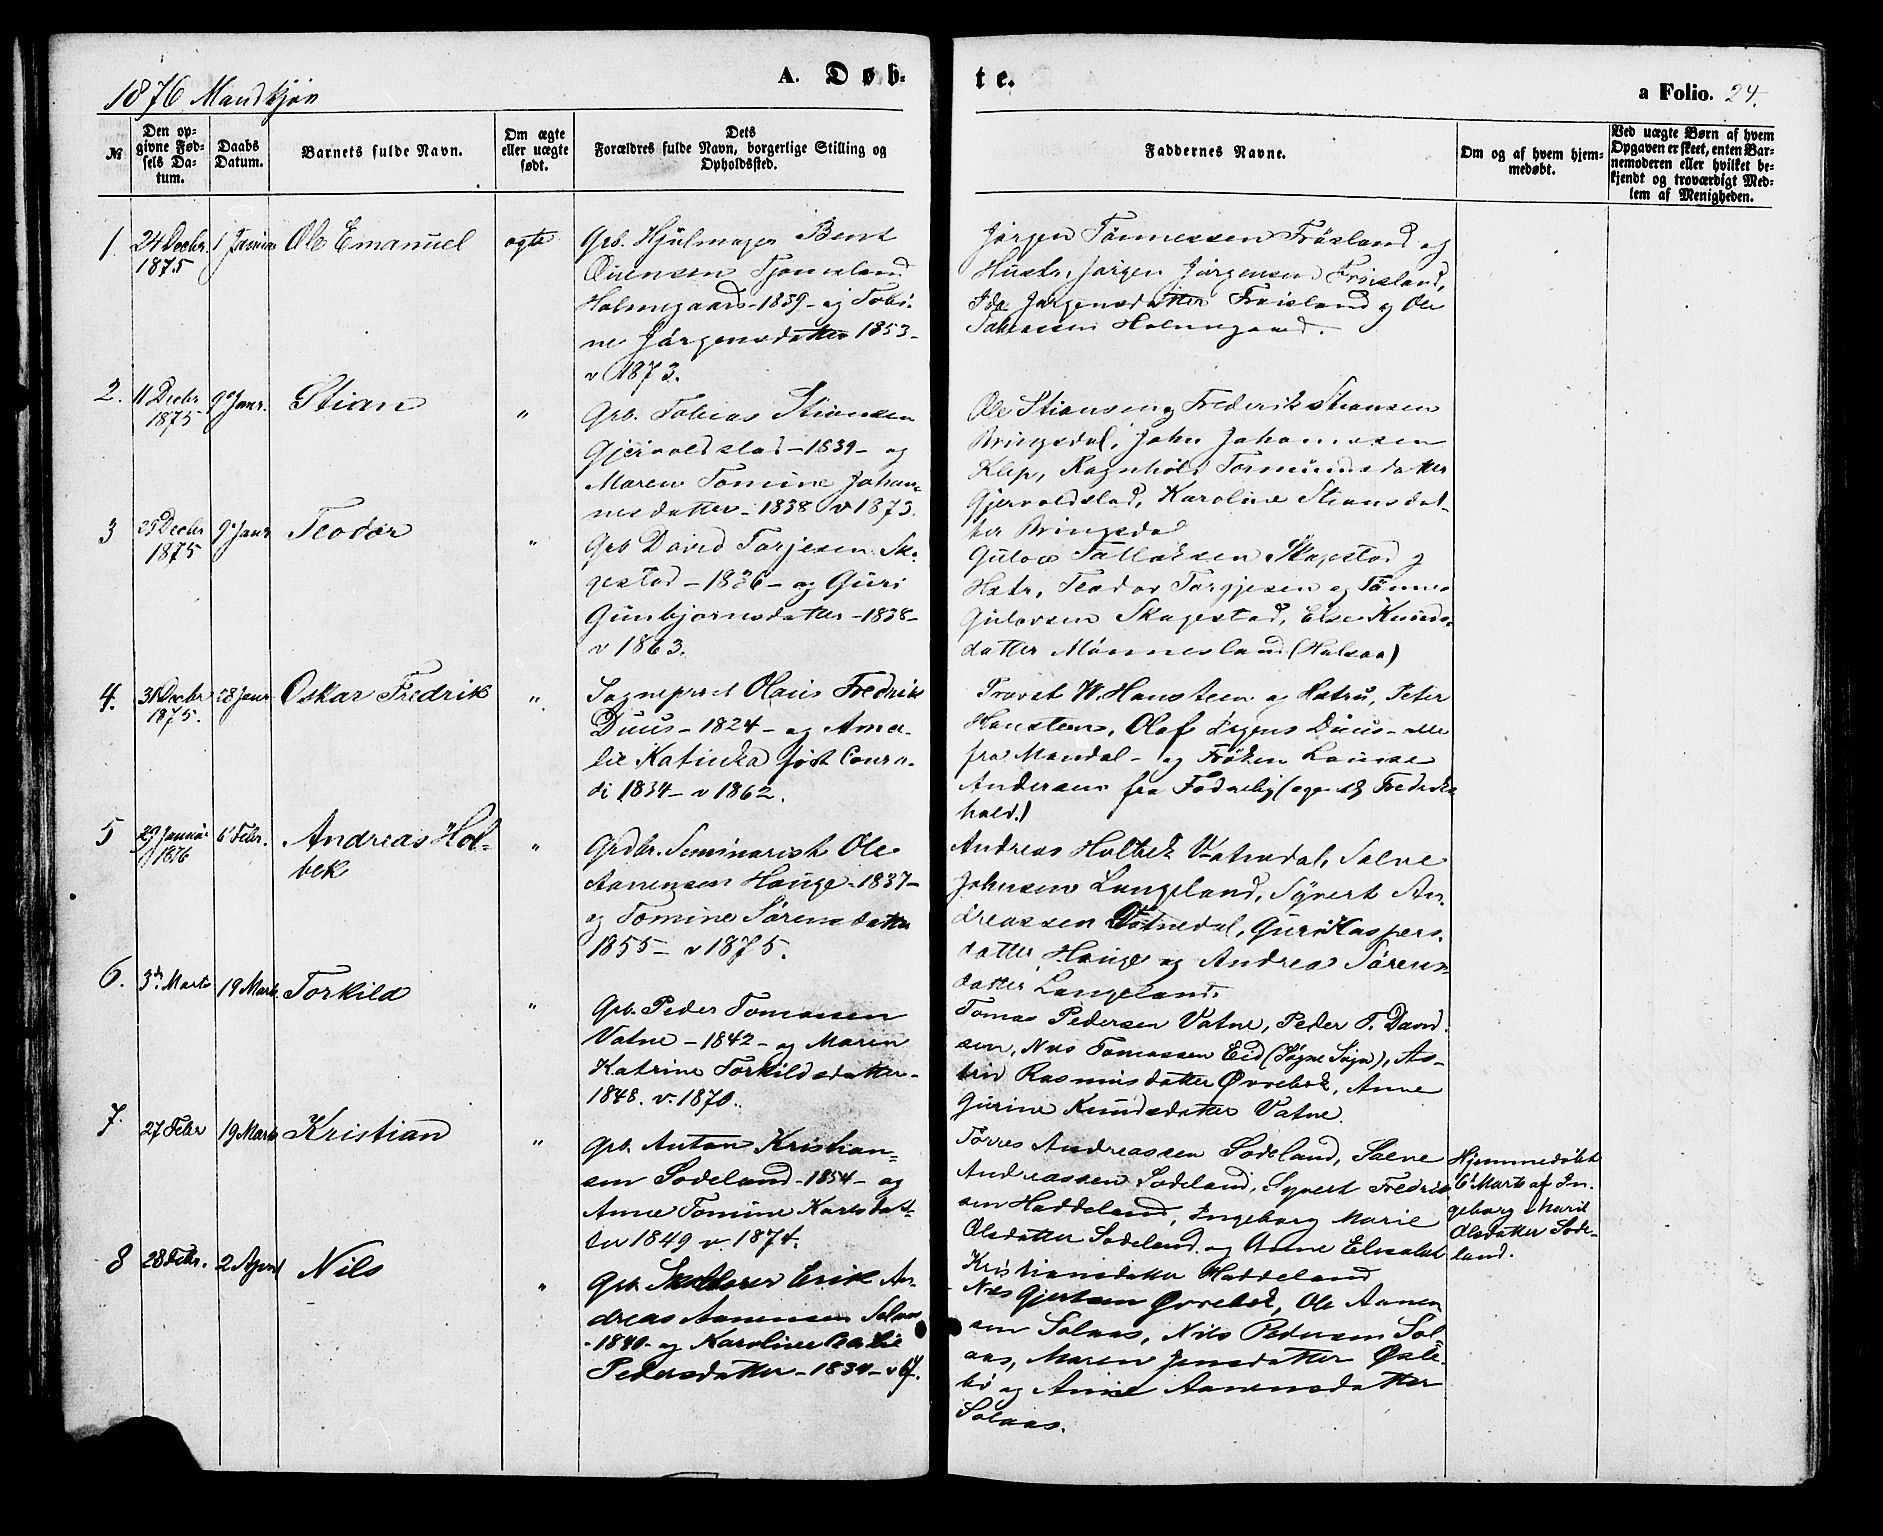 1876 Mandkjøn
A. Døb-
te.
a Folio. 24.
№
Den op-
givne Fød-
sels Da-
tum.
Daabs
Datum.
Barnets fulde Navn.
Om ægte
eller uægte
født.
Dets
Forældres fulde Navn, borgerlige Stilling og
Opholdssted.
Faddernes Navne.
Om og af hvem hjem-
medøbt.
Ved uægte Børn af hvem
Opgaven er skeet, enten Bar-
nemoderen eller hvilket be-
kjendt og troværdigt Med-
lem af Menigheden.
1.
24 Decbr
1875
1 Januar
Ole Emanuel
ægte
Grb. Hjulmager Bent
Tjomsland
Holmegaard - 1839 - og Tobi-
ne Jørgensdatter 1853 -
v 1873.
Jørgen Tønnessen Frøsland og
Hustr, Jørgen Jørgensen Frøisland,
Ida Jørgensdatter Frøisland og Ole
Holmegaard.
2.
11 Decbr
1875
9 Janr.
Stian
"
Grb. Tobias Stiansen
Gjervoldstad - 1839 - og
Maren Tomine Johan-
nesdatter - 1838 v 1873.
Ole Stiansen og Frederik Stiansen
Bringsdal, John Johannesen
Klep, Ragnhild Tormundsdatter
Gjervoldstad, Karoline Stiansdat-
ter Bringsdal
3
25 Decbr
1875
9 Janr
Teodor
"
Grb David Torjesen Ska-
gestad - 1836 - og Guri
Gunbjørnsdatter - 1838 -
v 1863.
Gulov Tallaksen Skagestad og
Hstr, Teodor Torgjesen og Tønnes
Gulovsen Skagestad, Else Knuds-
datter Mønnesland (Halsaa)
4.
31 Decbr
1875.
28 Janr
Oskar Fredrik
"
Sognepræst Olaus Fredrik
Duus - 1824 - og Ama-
lie Katinka født Conra-
di 1834 - v 1862.
Provst W. Hansteen og Hstru, Peter
Hansteen, Olaf Duus - alle
fra Mandal - og Frøken Louise
Andersen fra Fodneby (ogsaa Fredriks
hald.)
5
29 Januar
1876
6 Febr.
Andreas Hol-
bek
"
Grdbr. Seminarist Ole
Aanensen Hauge - 1837 -
og Tomine Sørensdatter
1855 - v 1875.
Andreas Holbek Vatnedal, Salve
Johnsen Langeland, Syvert An-
dreassen Vatnedal, Guri Kaspers-
datter Hauge og Andrea Sørens-
datter Langeland.
6.
3 Marts
19 Marts
Torkild
"
Grb. Peder Tomassen
Vatne - 1842 - og Maren
Katrine Torkildsdatter -
1848. v. 1870.
Tomas Pedersen Vatne, Peder T. David-
sen, Nils Tomassen Eid (Søgne Sogn), As-
trid Rasmusdatter Øvrebek, Anne
Gurine Knudsdatter Vatne.
7.
27 Febr
19 Marts
Kristian
"
Grb. Anton Kristian-
sen Sodeland - 1854 - og
Anne Tomine Karlsdat-
ter 1849 v. 1874.
Torres Andreassen Sodeland, Salve
Andreassen Sodeland, Syvert Fredrik-
sen Haddeland, Ingeborg Marie
Olsdatter Sodeland og Anne Elisabet
Kristiansdatter Haddeland
Hjemmedøbt
6 Marts af In-
geborg Marie
Olsdatter Sode-
land.
8
28 Febr.
2 April
Nils
"
Grb. Skolelærer Erik An-
dreas Aanensen Solaas
- 1840 - og Karoline
Pedersdatter - 1834 - v 67.
Nils Gjertsen Øvrebek, Ole Aanen
sen Solaas, Nils Pedersen Sol-
aas, Maren Jensdatter Øsle-
bø og Anne Aanensdatter
Solaas.